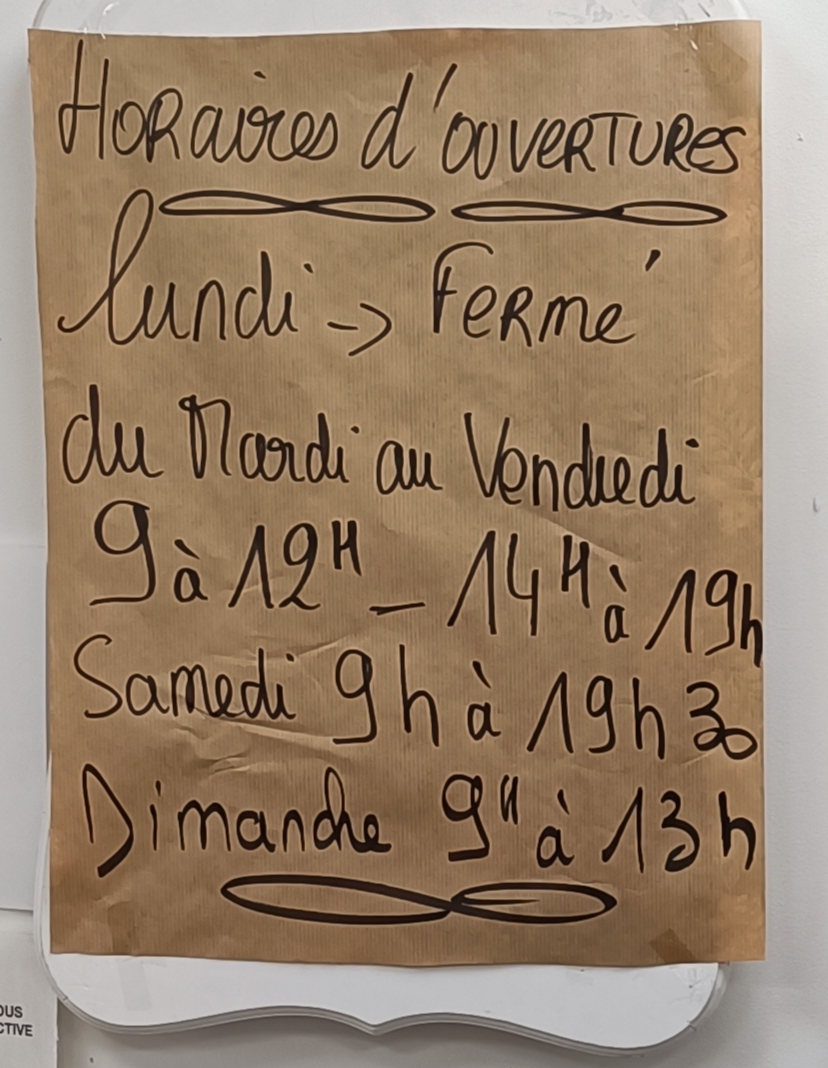 Horaires d'ouvertures
lundi -> Fermé
du Mardi au Vendredi
9 à 12H - 14H à 19h
Samedi 9h à 19h30
Dimanche 9H à 13h
OUS
CTIVE